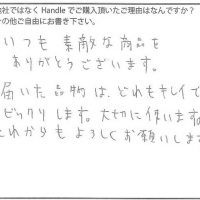 社ではなく Handle でご購入頂いたご理由はなんですか？
の他ご自由にお書き下さい。
いつも 素敵な商品を
ありがとうございます。
届いた品物は、どれもキレイで
ビックリします。大切に使います。
これからも よろしくお願いします